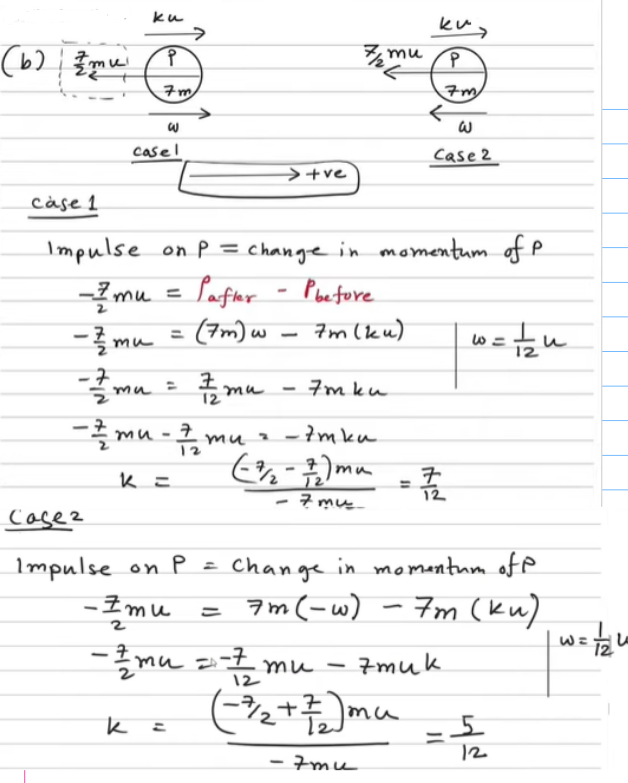 ku ku
(b) 7/2 mu P 7m 7/2 mu P 7m
w w
case 1 Case 2
→ +ve
case 1
Impulse on P = change in momentum of P
-7/2 mu = Pafter - Pbefore
-7/2 mu = (7m)w - 7m(ku) | w = 1/12 u
-7/2 mu = 7/12 mu - 7mku
-7/2 mu - 7/12 mu = -7mku
k = (-7/2 - 7/12)mu / -7mu = 7/12
Case 2
Impulse on P = Change in momentum of P
-7/2 mu = 7m(-w) - 7m(ku)
-7/2 mu = -7/12 mu - 7muk | w = 1/12 u
k = (-7/2 + 7/12)mu / -7mu = 5/12